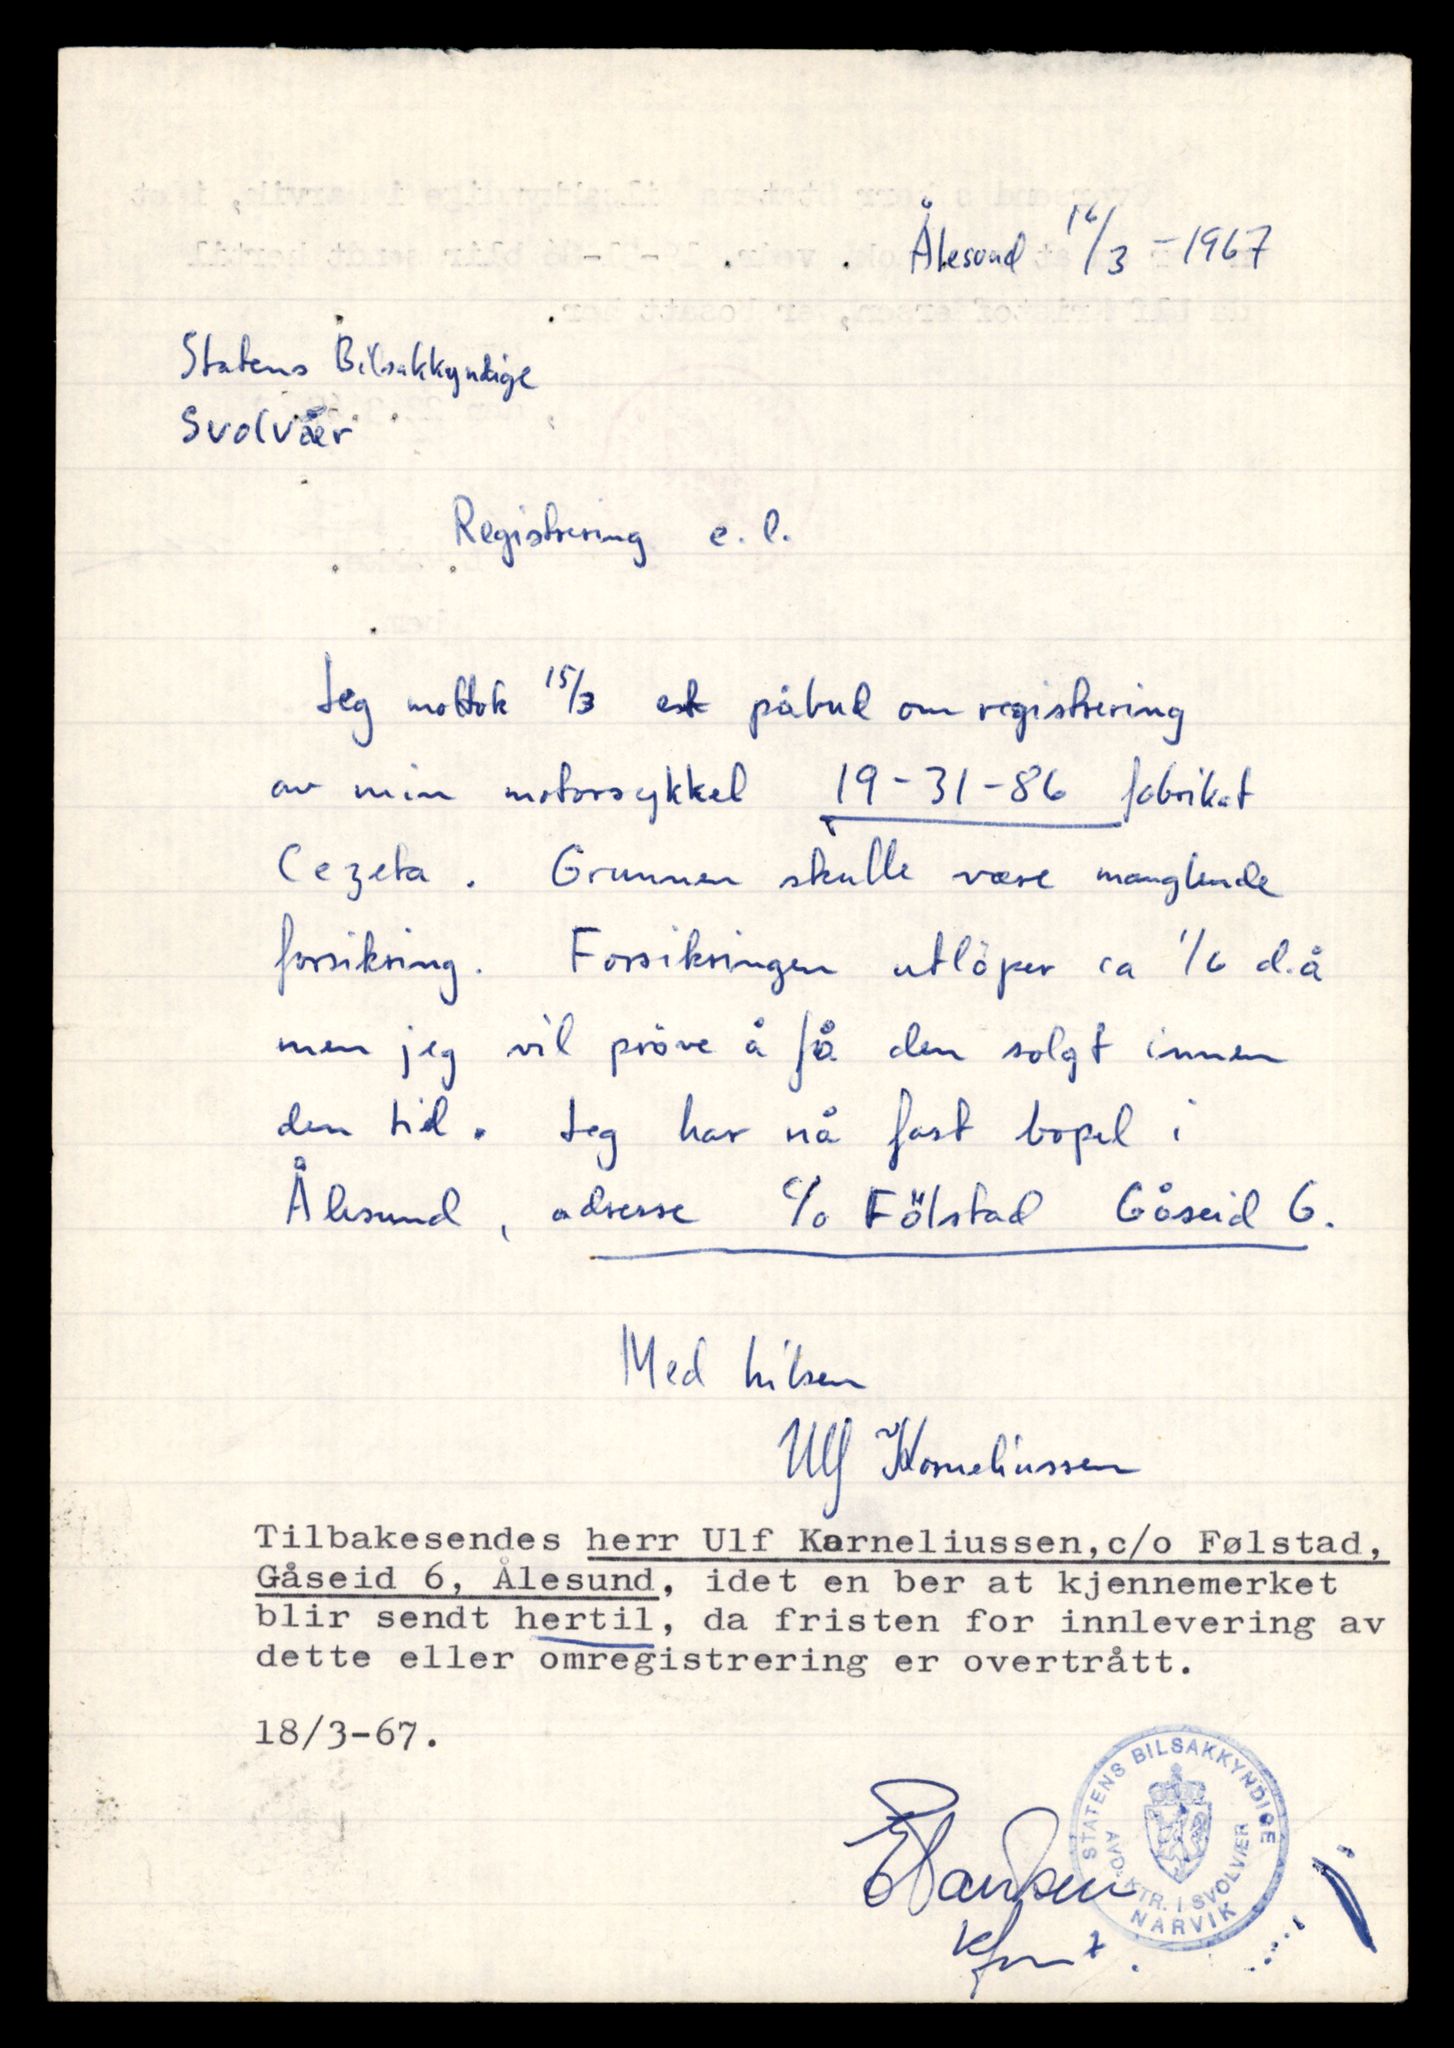 Ålesund 16/3 - 1967
Statens Bilsakkyndige
Svolvær
Registrering e.l.
Jeg mottok 15/3 et påbud om registrering
av min motorsykkel 19-31-86 fabrikat
Cezeta. Grunnen skulle være manglende
forsikring. Forsikringen utlöper ca 1/6 d.å
men jeg vil pröve å få den solgt innen
den tid. Jeg har nå fast bopel i
Ålesund, adresse c/o Fölstad Gåseid 6.
Med hilsen
Ulf Korneliussen
Tilbakesendes herr Ulf Karneliussen, c/o Følstad,
Gåseid 6, Ålesund, idet en ber at kjennemerket
blir sendt hertil, da fristen for innlevering av
dette eller omregistrering er overtrått.
18/3-67.
STATENS BILSAKKYNDIGE
AVD. KTR. I SVOLVÆR
NARVIK
EHansen